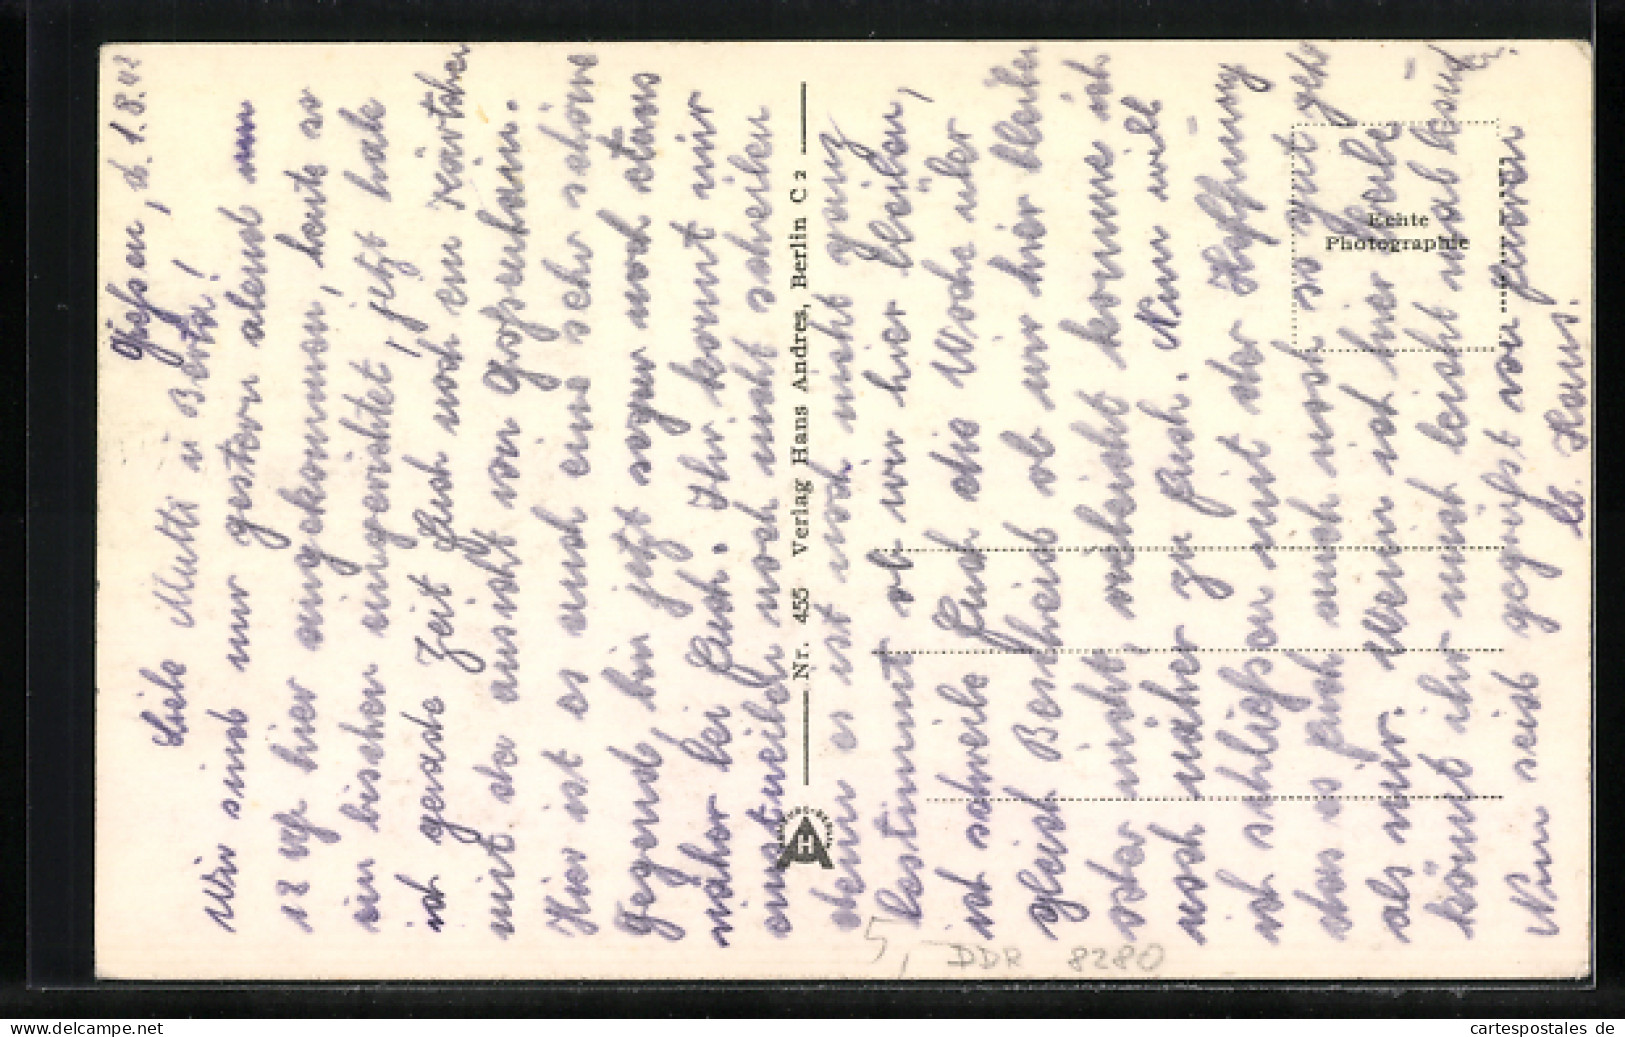 Gießen, d. 1.8.42
Liebe Mutti u Berta!
Wir sind nur gestern abend um
18 Uhr hier angekommen, heute so
ein bisschen eingerichtet, jetzt habe
ich gerade Zeit Euch noch ein Kärtchen
mit der ansicht von Großenhain.
Hier ist es auch eine sehr schöne
Gegend, bin jetzt sogar noch etwas
näher bei Euch. Ihr könnt mir
einstweilen noch nicht schreiben
denn es ist noch nicht ganz
bestimmt ob wir hier bleiben,
ich schreibe Euch die Woche über
gleich Bescheid ob wir hier bleiben
oder nicht, vieleicht komme ich
noch näher zu Euch. Nun will
ich schließen mit der Hoffnung
das es Euch auch noch so gut geht
als mir. Wenn ich hier bleibe
könnt ihr mich leicht mal besuch-
en.
Nun seid gegrüßt von Euren
lb. Hans.
Nr. 455 Verlag Hans Andres, Berlin C 2
Echte
Photographie
5,
DDR 8280
www.delcampe.net
cartespostales de